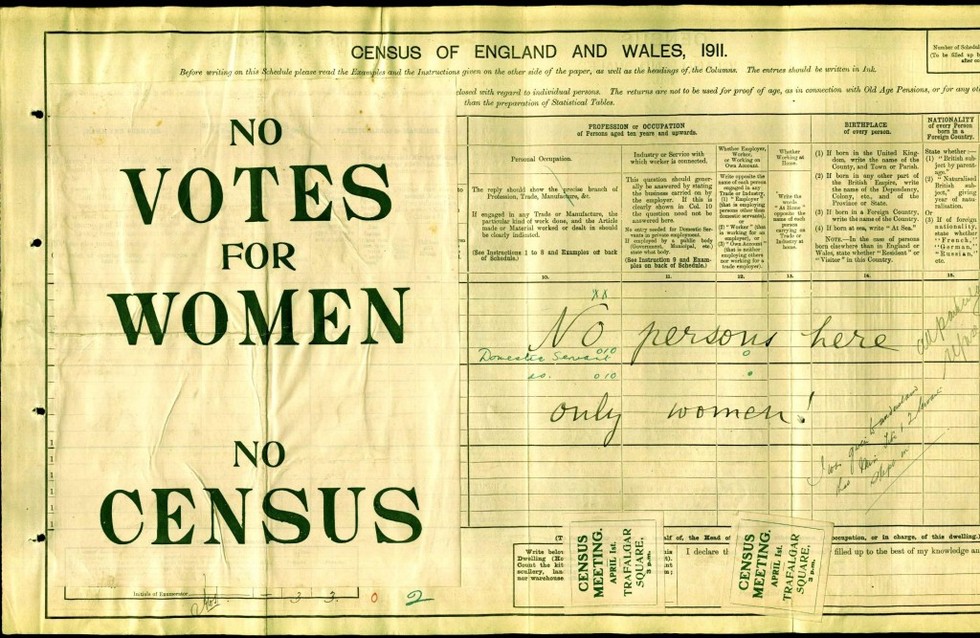 CENSUS OF ENGLAND AND WALES, 1911.
Before writing on this Schedule please read the Examples and the Instructions given on the other side of the paper, as well as the headings of the Columns. The entries should be written in Ink.
closed with regard to individual persons. The returns are not to be used for proof of age, as in connection with Old Age Pensions, or for any
than the preparation of Statistical Tables.
Number of
(To be filled up
NO
VOTES
FOR
WOMEN
NO
CENSUS
PROFESSION or OCCUPATION
of Persons aged ten years and upwards.
Personal Occupation.
The reply should show the precise branch of
Profession, Trade, Manufacture, &c.
If engaged in any Trade or Manufacture, the
particular kind of work done, and the Article
made or Material worked or dealt in should
be clearly indicated.
(See Instructions 1 to 8 and Examples on back
of Schedule.)
10.
Industry or Service with
which worker is connected.
This question should gener-
ally be answered by stating
the business carried on by
the employer. If this is
clearly shown in Col. 10
the question need not be
answered here.
No entry needed for Domestic Ser-
vants in private employment.
If employed by a public body
(Government, Municipal, etc.)
state what body.
(See Instruction 9 and Exam-
ples on back of Schedule.)
11.
Whether Employer,
Worker,
or Working on
Own Account.
Write opposite the
name of each person
engaged in any
Trade or Industry,
(1) "Employer"
(that is employing
persons other than
domestic servants),
or
(2) "Worker" (that
is working for an
employer), or
(3) "Own Account"
(that is neither
employing others
nor working for a
trade employer).
12.
Whether
Working at
Home.
Write the
words
"At Home"
opposite the
name of each
person
carrying on
Trade or
Industry at
home.
13.
BIRTHPLACE
of every person.
(1) If born in the United King-
dom, write the name of the
County, and Town or Parish.
(2) If born in any other part of
the British Empire, write
the name of the Dependency,
Colony, etc., and of the
Province or State.
(3) If born in a Foreign Country,
write the name of the Country.
(4) If born at sea, write "At Sea."
NOTE.—In the case of persons
born elsewhere than in England or
Wales, state whether "Resident" or
"Visitor" in this Country.
14.
NATIONALITY
of every Person
born in a
Foreign Country.
State whether:—
(1) "British sub-
ject by parent-
age."
(2) "Naturalised
British
giving
year of natu-
ralisation.
Or
(3) If of foreign
nationality,
state whether
"French,"
"German,"
"Russian,"
etc.
15.
No persons here
Domestic Servant 010 0
do. 010
only women!
of the Head of
occupation, or in charge, of this dwelling.)
Write below
Dwelling
Count the
scullery,
nor warehouse
I declare
filled up to the best of my knowledge
CENSUS
MEETING.
APRIL 1st.
TRAFALGAR
SQUARE,
3 p.m.
CENSUS
MEETING.
APRIL 1st.
TRAFALGAR
SQUARE,
3 p.m.
Initials of Enumerator
3 3. 0 2